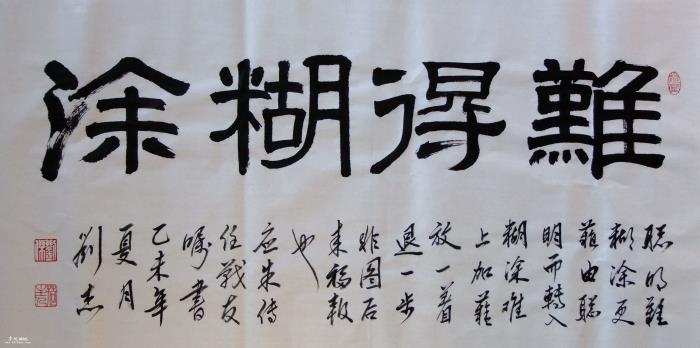 難得糊涂
聪明難
糊涂更
難由聪
明而轉入
糊涂难
上加難
放一着
退一步
非圖后
来福報
也
应朱传
任戰友
嘱書
乙未年
夏月
劉杰